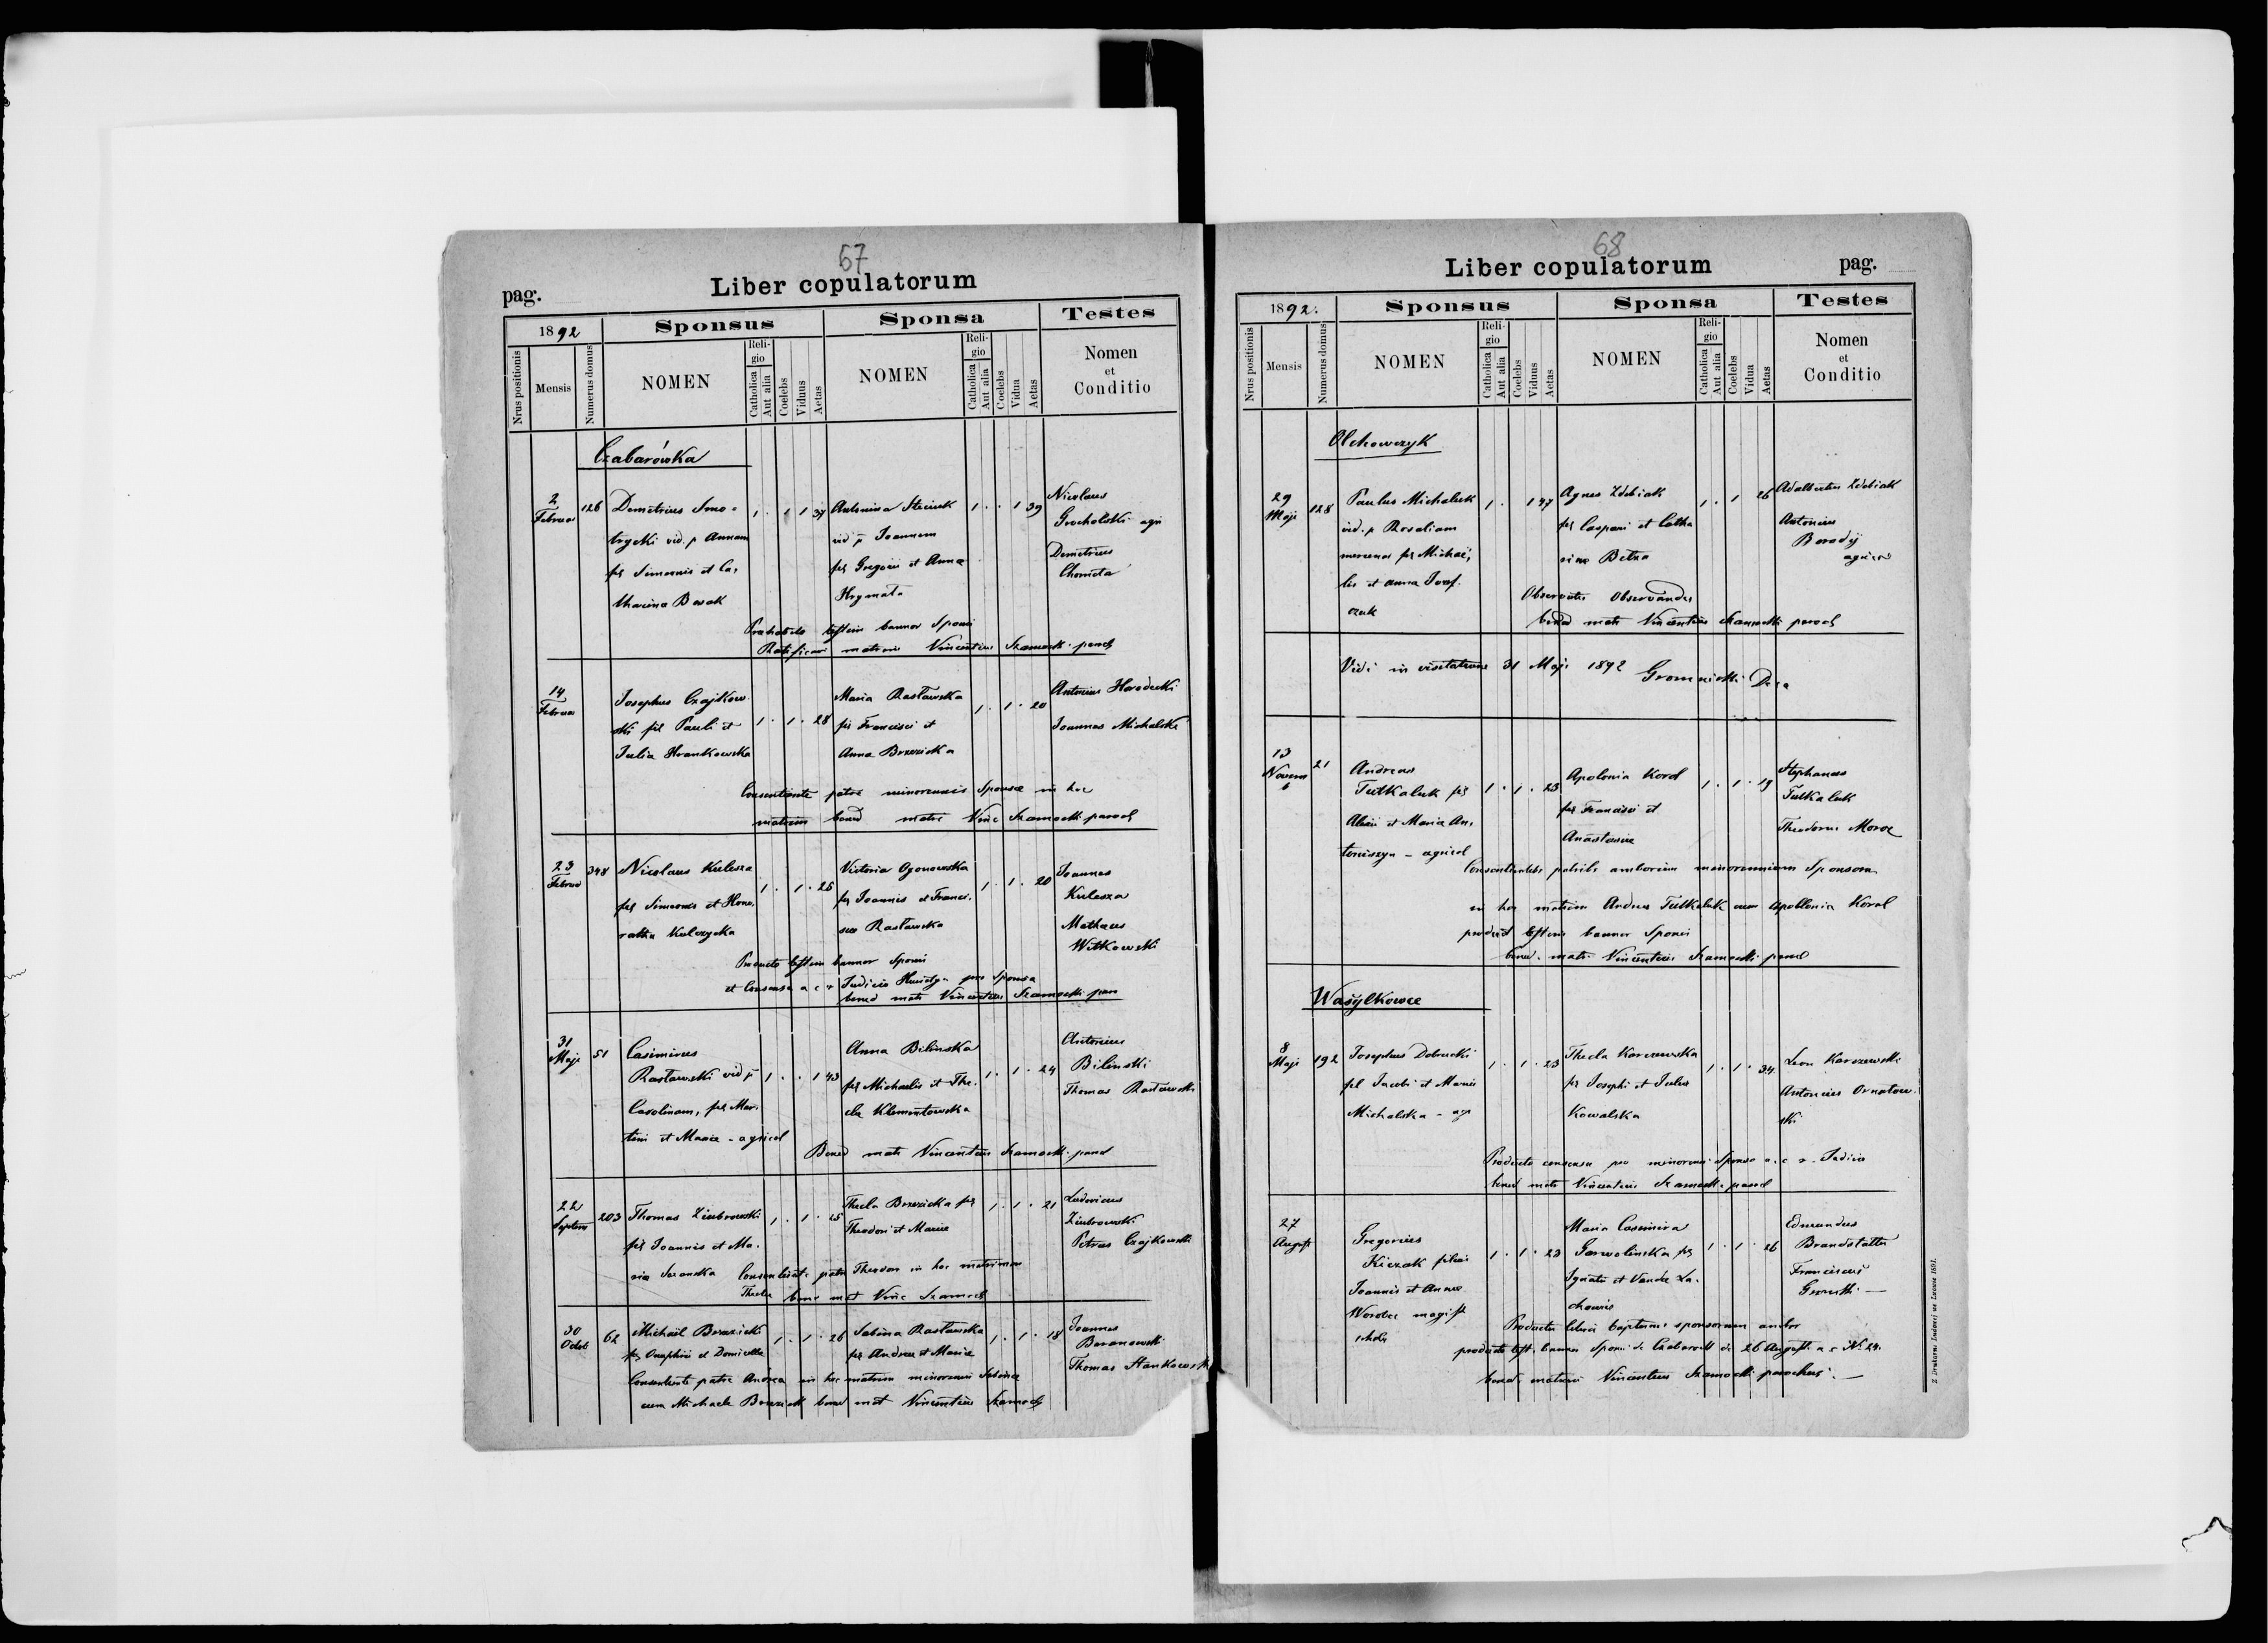 67
Liber copulatorum
pag.
1892
Sponsus
Sponsa
Testes
Nrus positionis
Mensis
Numerus domus
NOMEN
Religio
Catholica
Aut alia
Coelebs
Viduus
Aetas
NOMEN
Religio
Catholica
Aut alia
Coelebs
Vidua
Aetas
Nomen
et
Conditio
Czabarówka
2
Februar
126
Demetrius Smo=
trycki vid. p Annam
fil Simeonis et Ca,
tharina Bosak
1 . 1 1 37
Antonina Steciuk
vid p Joannem
fil Gregorii et Anna
Hrymata
1 . . 1 39
Nicolaus
Grocholski agr
Demetrius
Chometa
bannor Sponsi
matrim Vincentius Szamocki paroch
14
Februar
Josephus Czajkow
ski fil Pauli et
Julia Hrankowska
1 . 1 . 28
Maria Rasławska
fil Francisci et
Anna Brzezicka
1 . 1 . 20
Antonius Horodecki
Joannes Michalski
Consentiente patre minorennis Sponsae in hoc
matrim bened matr Vinc Szamocki paroch
23
Februar
348
Nicolaus Kulesza
fil Simeonis et Hono,
ratha Kulczycka
1 . 1 . 25
Victoria Ogonowska
fil Joannis et Franci,
sca Rasławska
1 . 1 . 20
Joannes
Kulesza
Mathaeus
Witkowski
Producto testim bannor Sponsi
et Consensu a c r Judicio pro Sponsa
bened matr Vincentius Szamocki paro
31
Maji
51
Casimirus
Rasławski vid p
Carolinam, fil Mar.
tini et Maria - agricol
1 . . 1 43
Anna Bilinska
fil Michaelis et The.
cla Klementowska
1 . 1 . 24
Antonius
Bilinski
Thomas Rasławski
Bened matr Vincentius Szamocki paroch
22
Septem
203
Thomas Ziubrowski
fil Joannis et Ma.
ria
1 . 1 . 25
Thecla Brzezicka fil
Theodori et Mariae
1 . 1 . 21
Ludovicus
Ziubrowski
Petrus Czajkowski
patre Theodor in hoc matrimon
Thecla bene mat Vinc Szamock
30
Octob
62
Michaël Brzezicki
fil Onuphrii et Domicella
1 . 1 . 26
Sabina Rasławska
fil Andrea et Maria
1 . 1 . 18
Joannes
Baranowski
Thomas Stankowski
Consentiente patre Andrea in hoc matrim minorenni Sabina
cum Michaele Brzezicki bened mat Vincentius Szamock
68
Liber copulatorum
pag.
1892.
Sponsus
Sponsa
Testes
Nrus positionis
Mensis
Numerus domus
NOMEN
Religio
Catholica
Aut alia
Coelebs
Viduus
Aetas
NOMEN
Religio
Catholica
Aut alia
Coelebs
Vidua
Aetas
Nomen
et
Conditio
Olchowczyk
29
Maji
128
Paulus Michaluk
vid. p Rosaliam
fil Michaë,
lis et anna
czuk
1 . 1 47
Agnes Zdebiak
fil Caspari et Catha
rina Betza
1 . 1 26
Adalbertus Zdebiak
Antonius
Borodij
agricol
Observatis Observandis
bened matr Vincentius Szamocki paroch
Vidi in visitatione 31 Maji 1892 Gromnicki
13
Novem
b
21
Andreas
Tutkaluk fil
Alexii et Maria An,
toniszyn - agricol
1 . 1 . 23
Apolonia Korol
fil Francisci et
Anastasiae
1 . 1 . 19
Stephanus
Tutkaluk
Theodorus Moroz
Consentientibus patribs amborum minorennium Sponsorum
in hoc matrim Andrea Tutkaluk cum Apollonia Korol
product testim bannor Sponsi
bened. matr Vincentius Szamocki paroch
Wasylkowce
8
Maji
192
Josephus Dobrucki
fil Jacobi et Maria
Michalska - agr
1 . 1 . 23
Thecla Karczewska
fil Josephi et Julia
Kowalska
1 . 1 . 34
Leon Karczewski
Antonius Ornatow.
ski
Producto consensu pro minorenni Sponso a. c r. Judicio
bened matr Vincentius Szamocki paroch
27
August
Gregorius
Kiczak filius
Joannis et Annae
Worobec magist
schola
1 . 1 . 23
Maria Casimira
Garwolinska fil
Ignatii et Vanda Za.
charis
1 . 1 . 26
Edmundus
Brandstätter
Franciscus
Productis baptism sponsorum ambor
producto test. bannor Sponsi de Czabarowk de 26 August a c N. 24.
bened. matrim Vincentius Szamocki parochus. —
Z Drukarni Ludowej we Lwowie 1891.